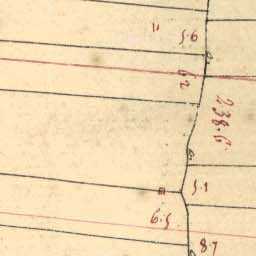 11
5.6
62
238.6
5.1
6.5
8.7